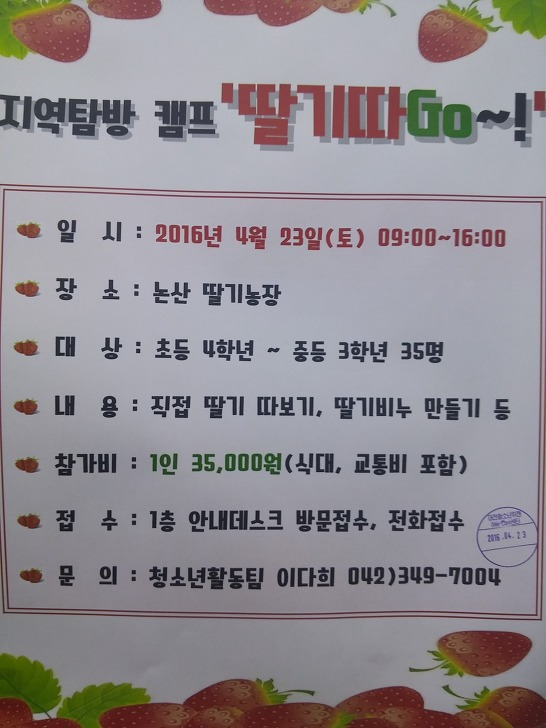 지역탐방 캠프 '딸기따Go~!'
일 시 : 2016년 4월 23일(토) 09:00~16:00
장 소 : 논산 딸기농장
대 상 : 초등 4학년 ~ 중등 3학년 35명
내 용 : 직접 딸기 따보기, 딸기비누 만들기 등
참가비 : 1인 35,000원(식대, 교통비 포함)
접 수 : 1층 안내데스크 방문접수, 전화접수
2016 .04. 23
문 의 : 청소년활동팀 이다희 042)349-7004